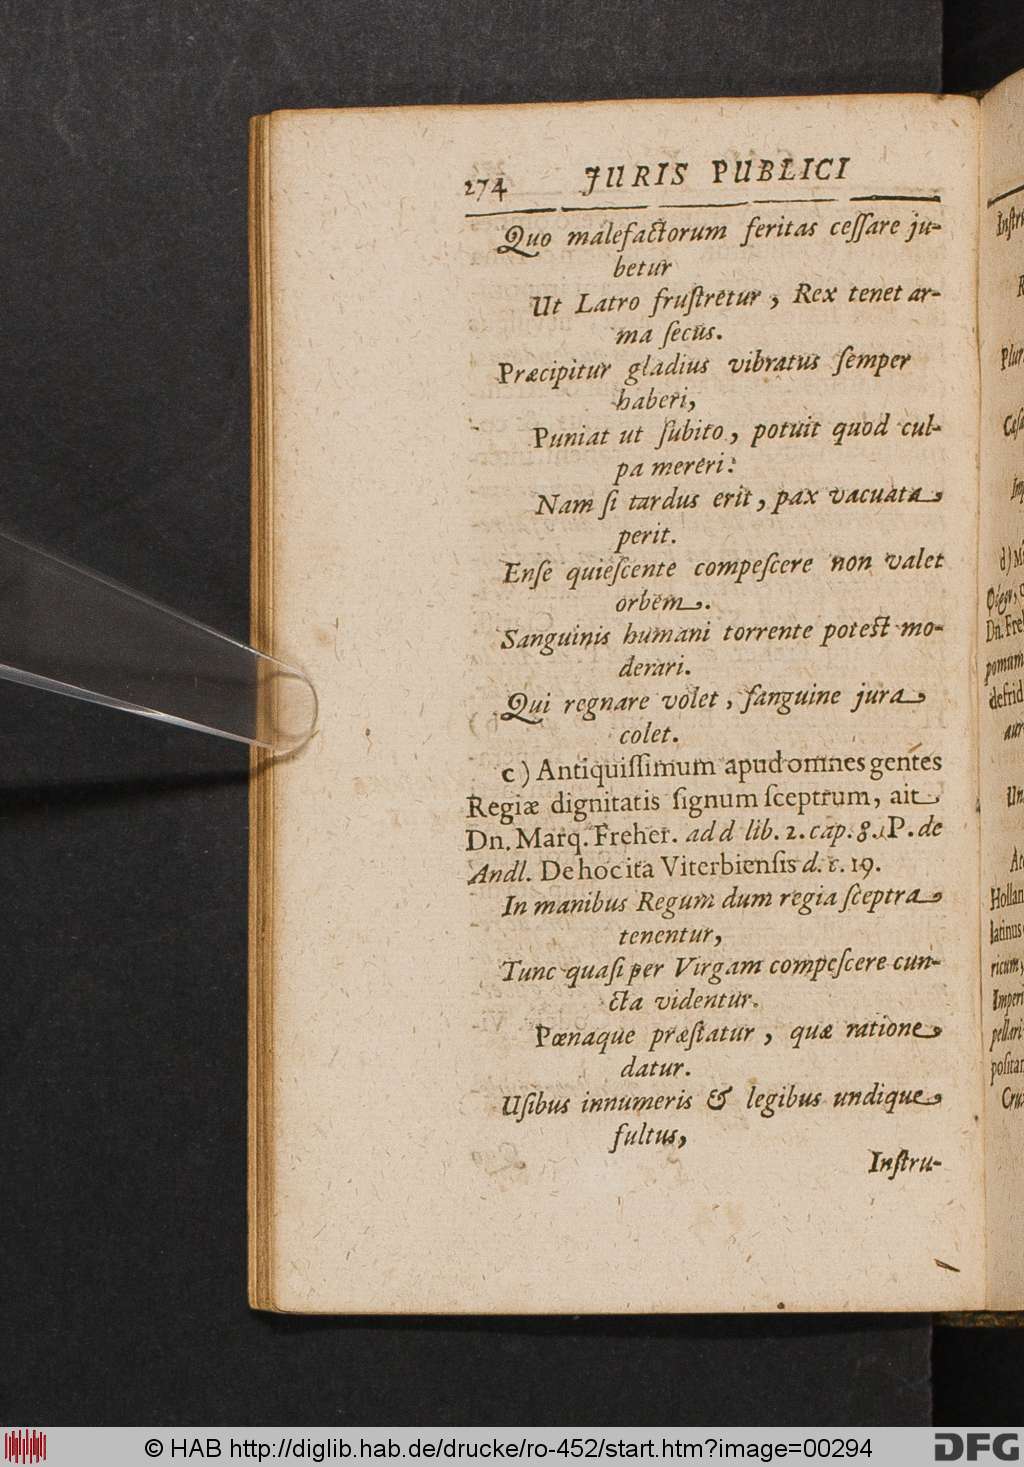 274 JURIS PUBLICI
Quo malefactorum feritas ceſſare ju-
betur
Ut Latro fruſtretur, Rex tenet ar-
ma ſecus.
Præcipitur gladius vibratus ſemper
haberi,
Puniat ut ſubito, potuit quod cul-
pa mereri:
Nam ſi tardus erit, pax vacuata
perit.
Enſe quieſcente compeſcere non valet
orbem.
Sanguinis humani torrente poteſt mo-
derari.
Qui regnare volet, ſanguine jura
colet.
c) Antiquiſſimum apud omnes gentes
Regiæ dignitatis ſignum ſceptrum, ait
Dn. Marq. Freher. add lib. 2. cap. 8. P. de
Andl. De hoc ita Viterbienſis d. c. 19.
In manibus Regum dum regia ſceptra
tenentur,
Tunc quaſi per Virgam compeſcere cun-
cta videntur.
Pœnaque præſtatur, quæ ratione
datur.
Uſibus innumeris & legibus undique
fultus,
Inſtru-
Inſtru
Plur
Caſa
Imp
d) M
Dn. Fre
pomum
defrid
aur
Hollan
latinus
ricum,
Imperi
pellari
poſitan
Cru
© HAB http://diglib.hab.de/drucke/ro-452/start.htm?image=00294
DFG